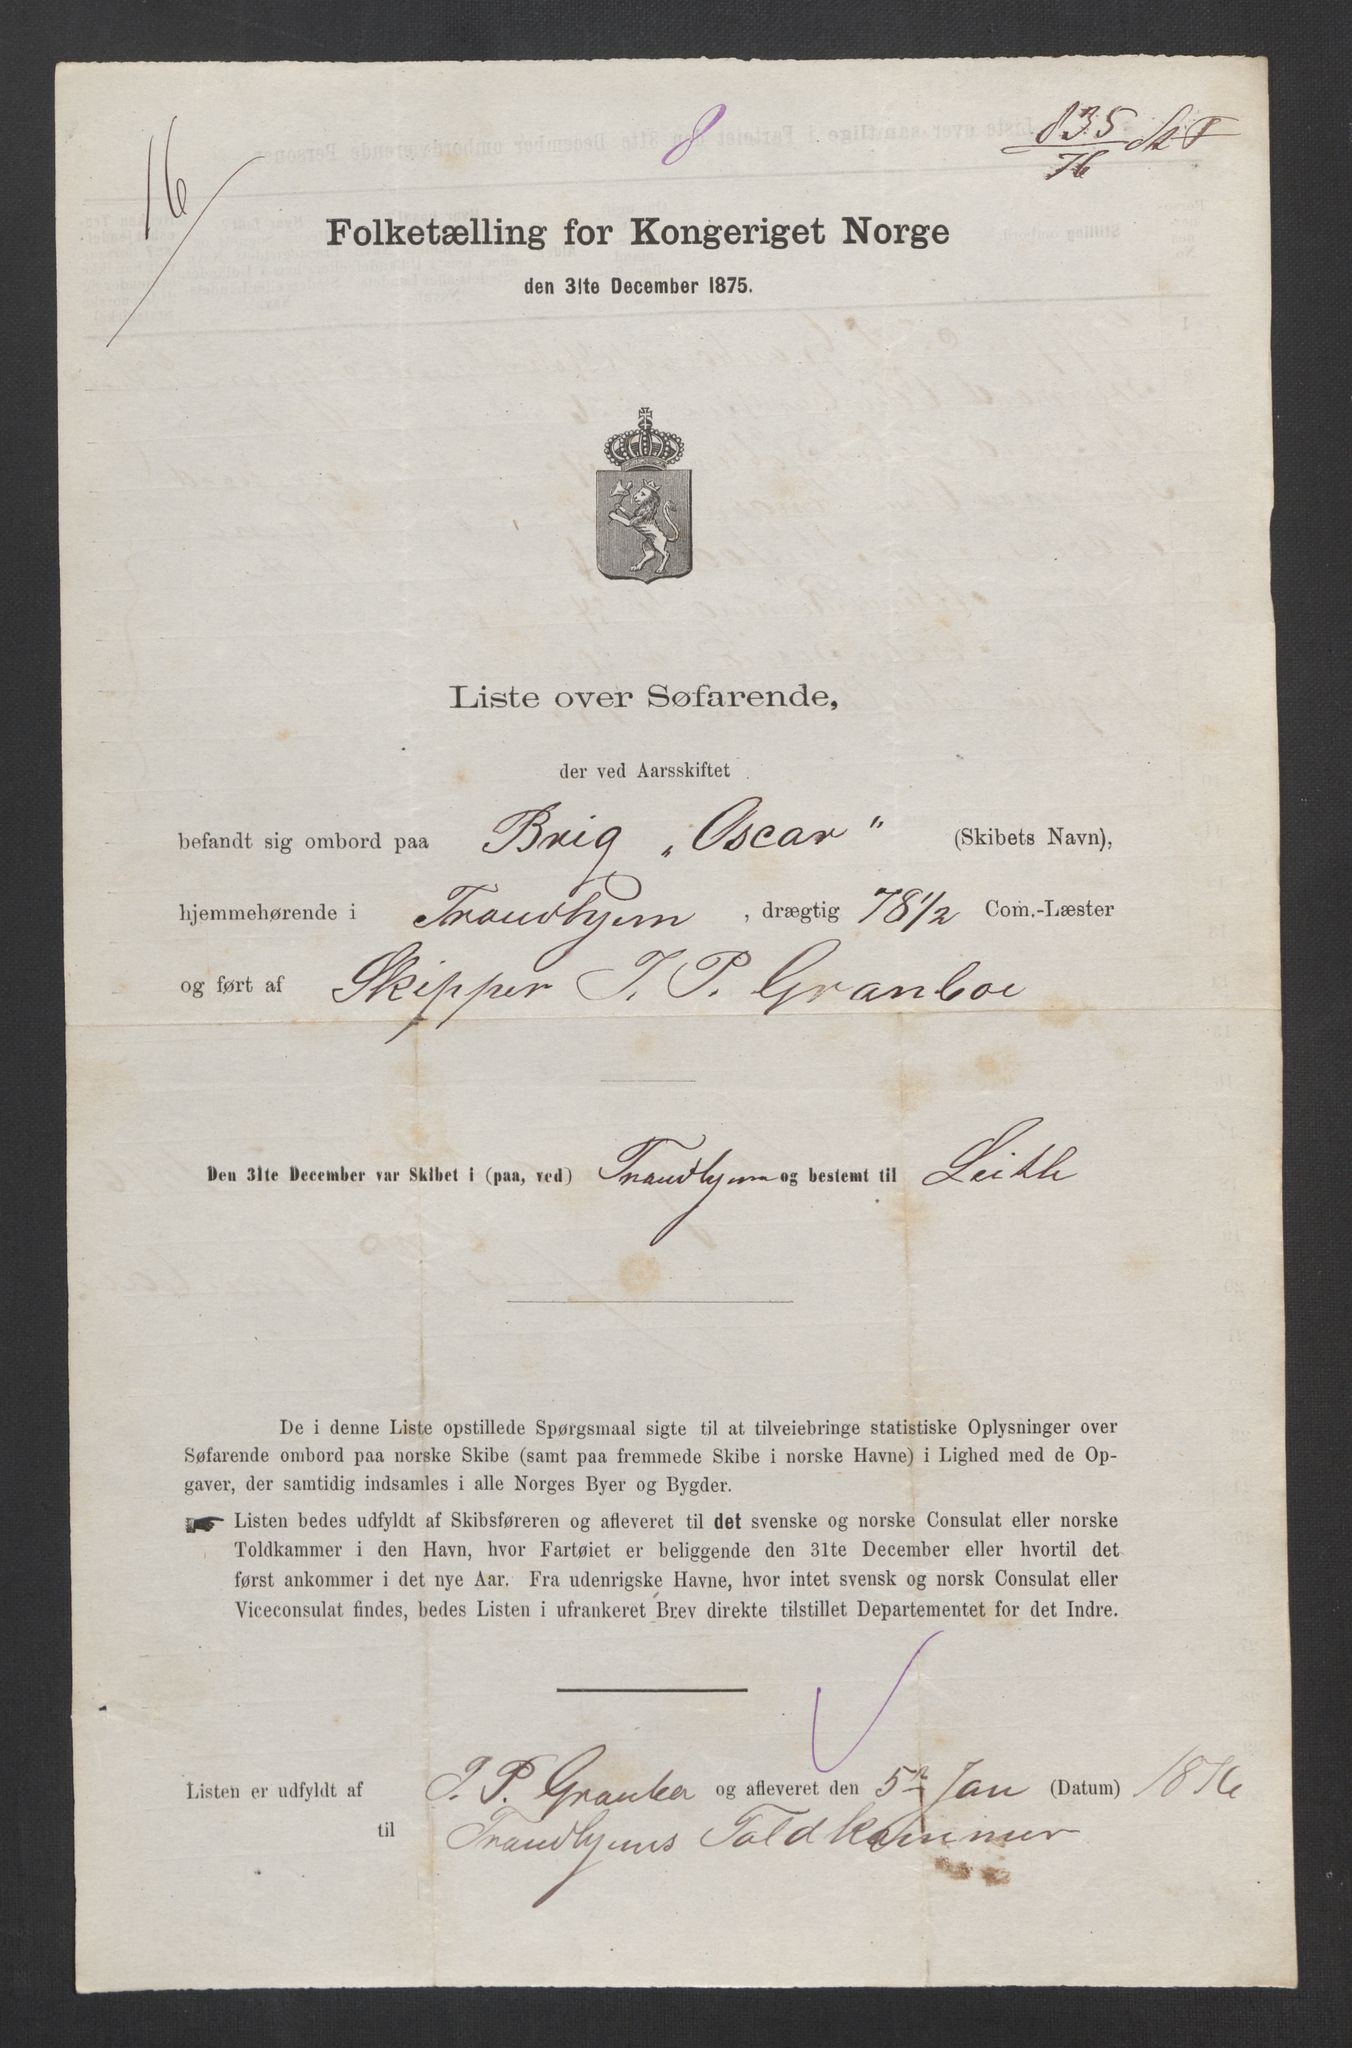 16
8
835
76
Folketælling for Kongeriget Norge
den 31te December 1875.
Liste over Søfarende,
der ved Aarsskiftet
befandt sig ombord paa Brig „Oscar“ (Skibets Navn),
hjemmehørende i Trondhjem, drægtig 78 1/2 Com.-Læster
og ført af Skipper J. P. Granboe
Den 31te December var Skibet i (paa, ved) Trondhjem og bestemt til Leith
De i denne Liste opstillede Spørgsmaal sigte til at tilveiebringe statistiske Oplysninger over
Søfarende ombord paa norske Skibe (samt paa fremmede Skibe i norske Havne) i Lighed med de Op-
gaver, der samtidig indsamles i alle Norges Byer og Bygder.
☛ Listen bedes udfyldt af Skibsføreren og afleveret til det svenske og norske Consulat eller norske
Toldkammer i den Havn, hvor Fartøiet er beliggende den 31te December eller hvortil det
først ankommer i det nye Aar. Fra udenrigske Havne, hvor intet svensk og norsk Consulat eller
Viceconsulat findes, bedes Listen i ufrankeret Brev direkte tilstillet Departementet for det Indre.
Listen er udfyldt af J. P. Granboe og afleveret den 5te Jan (Datum) 1876
til Trondhjems Toldkammer